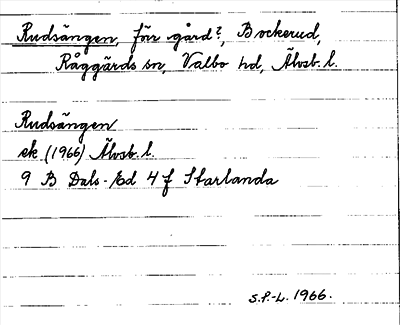 Rudsängen, förr gård?, Bockerud,
Råggärds sn, Valbo hd, Älvsb. l.
Rudsängen
ek (1966) Älvsb. l.
9 B Dals-Ed 4 f Starlanda
S.P.-L. 1966.